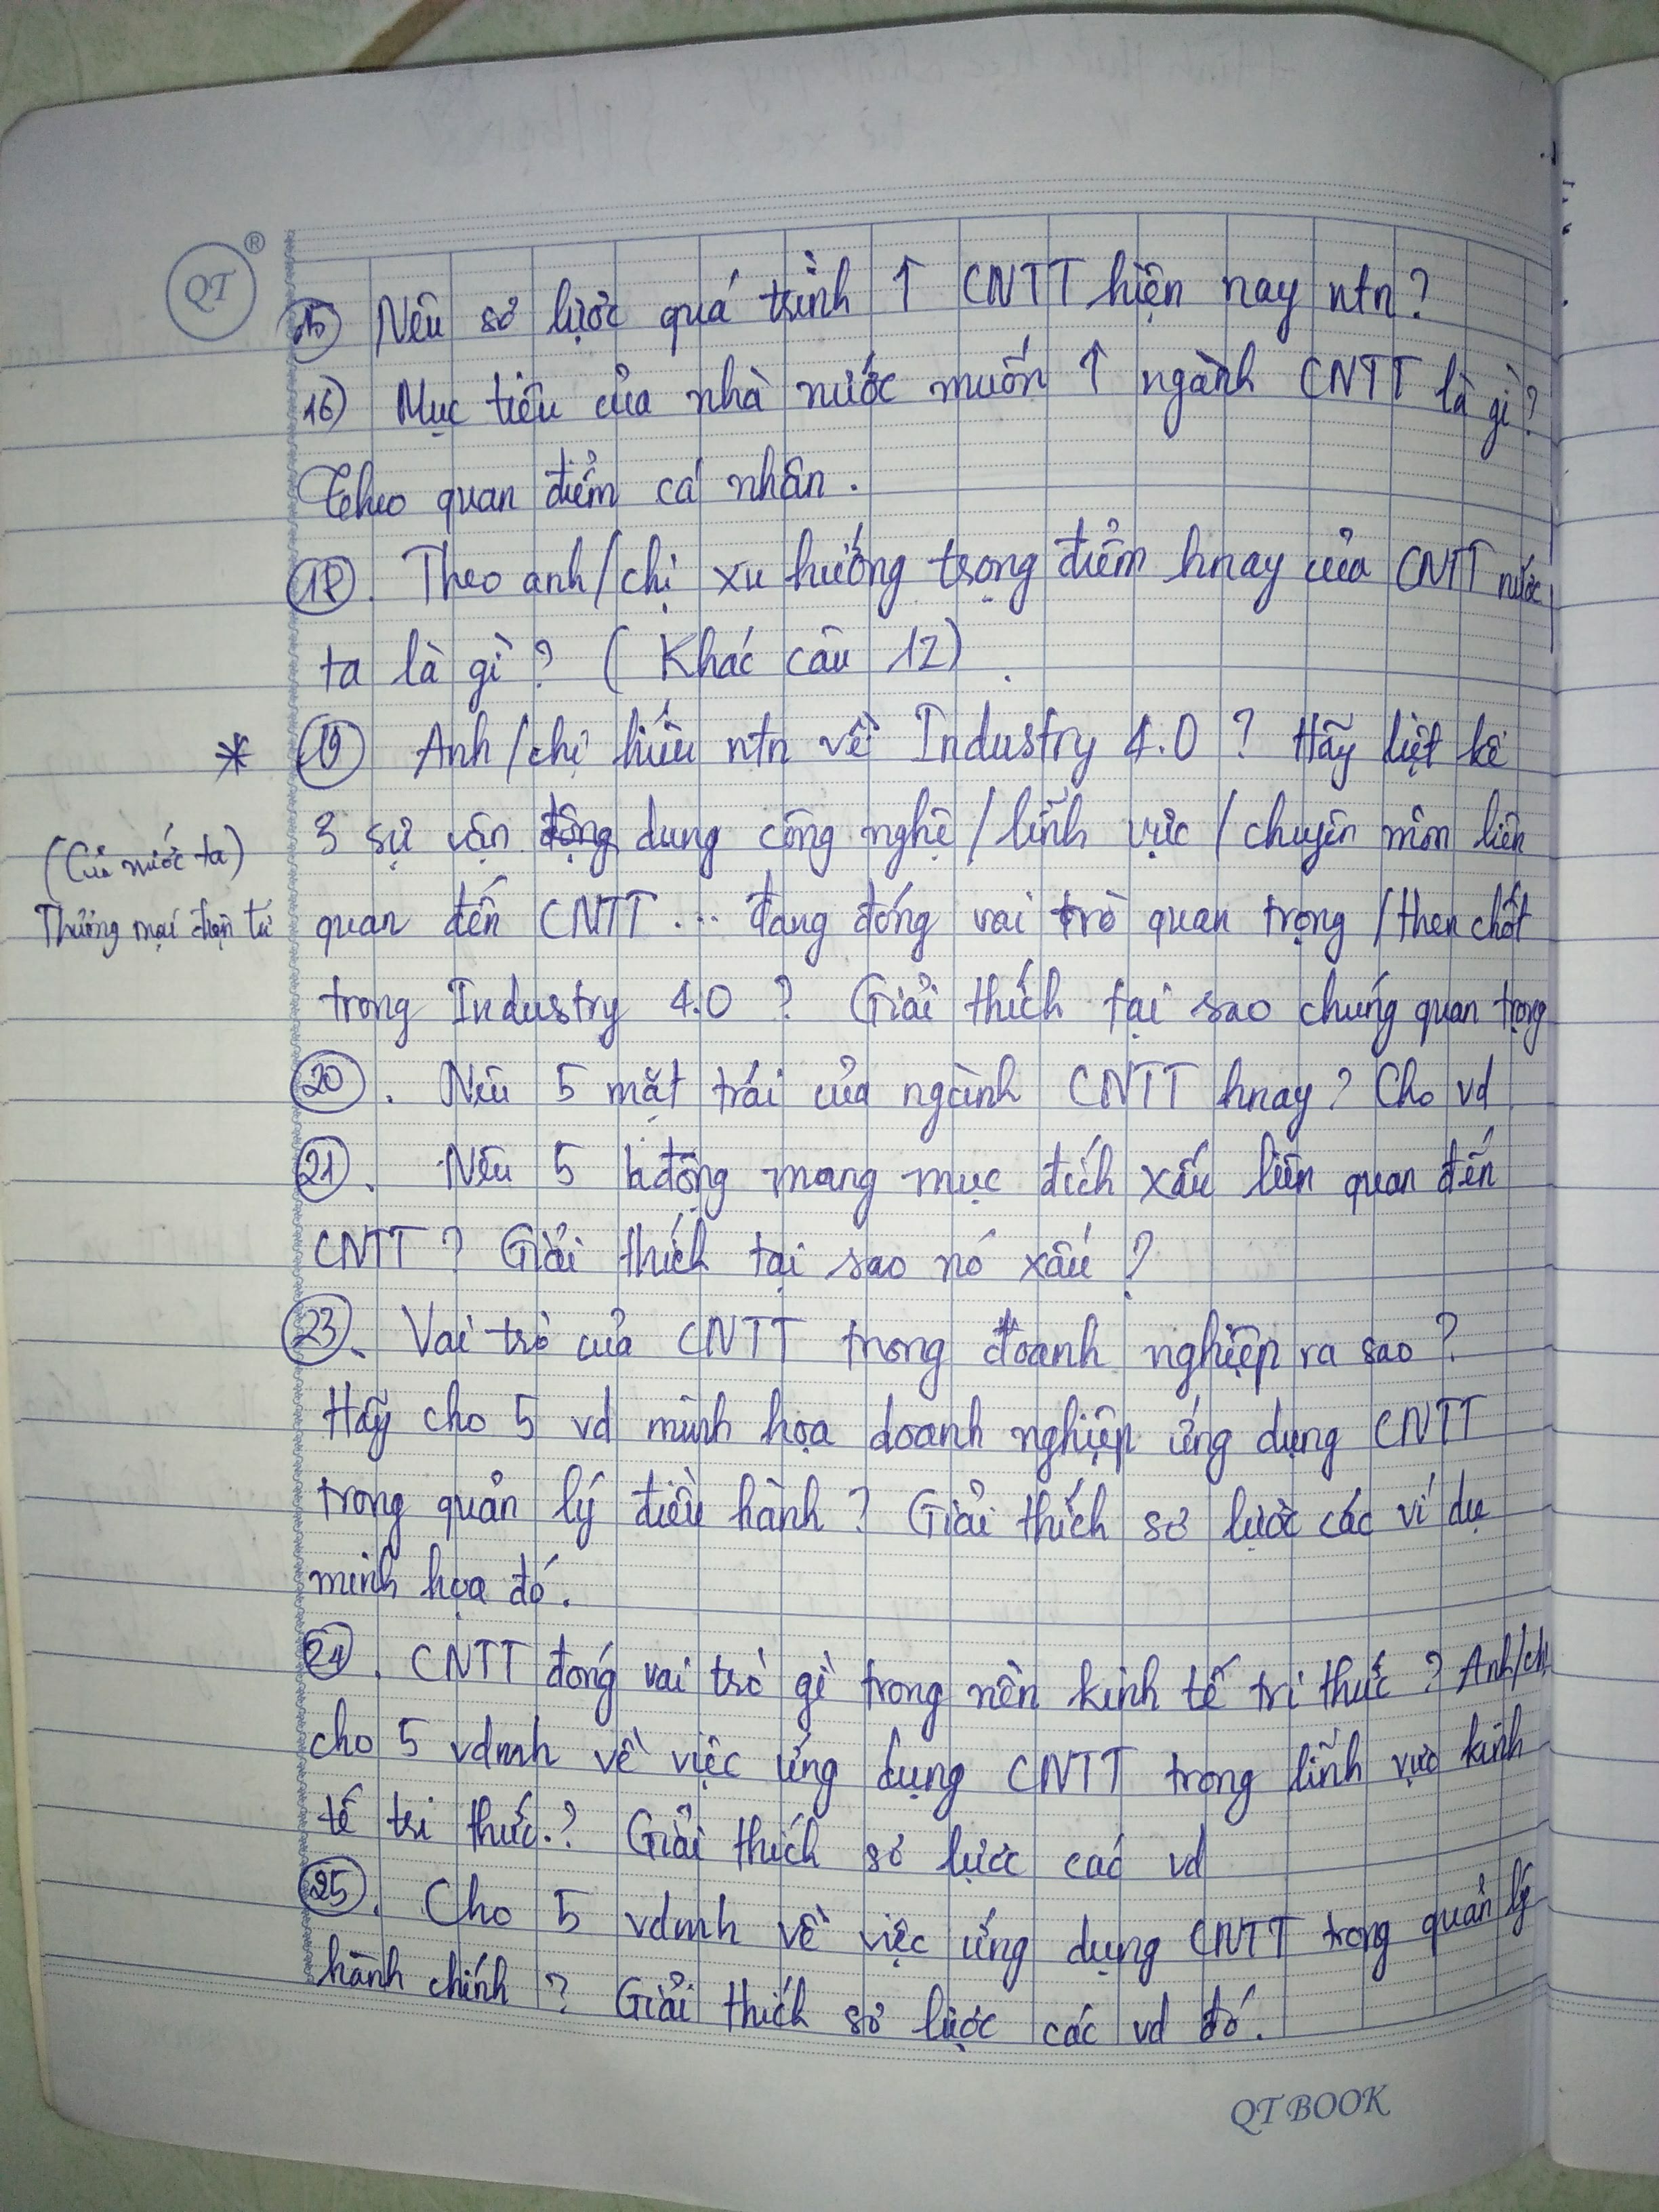 QT ®
15) Nêu sơ lược quá trình ↑ CNTT hiện nay ntn?
16) Mục tiêu của nhà nước muốn ↑ ngành CNTT là gì?
Theo quan điểm cá nhân.
18. Theo anh/chị xu hướng trọng điểm hnay của CNTT nước
ta là gì? (Khác câu 12)
* 19 Anh/chị hiểu ntn về Industry 4.0? Hãy liệt kê
3 sự vận động dung công nghệ/lĩnh vực/chuyên môn liên
(Của nước ta)
Thương mại điện tử
quan đến CNTT... đang đóng vai trò quan trọng/then chốt
trong Industry 4.0? Giải thích tại sao chúng quan trọng
20. Nêu 5 mặt trái của ngành CNTT hnay? Cho vd
21. Nêu 5 hđộng mang mục đích xấu liên quan đến
CNTT? Giải thích tại sao nó xấu?
23. Vai trò của CNTT trong doanh nghiệp ra sao?
Hãy cho 5 vd minh họa doanh nghiệp ứng dụng CNTT
trong quản lý điều hành? Giải thích sơ lược các ví dụ
minh họa đó.
24. CNTT đóng vai trò gì trong nền kinh tế tri thức? Anh/chị
cho 5 vdmh về việc ứng dụng CNTT trong lĩnh vực kinh
tế tri thức.? Giải thích sơ lược các vd
25. Cho 5 vdmh về việc ứng dụng CNTT trong quản lý
hành chính? Giải thích sơ lược các vd đó.
QT BOOK